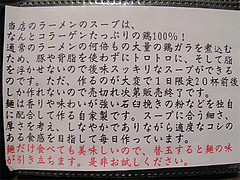 当店のラーメンのスープは、
なんとコラーゲンたっぷりの鶏100%！
通常のラーメンの何倍もの大量の鶏ガラを煮込む
ため、豚や背脂を使わずにトロトロに、そして脂
を浮かせないので後味スッキリなスープができる
のです。ただ、作るのが大変で１日限定20杯前後
しか作れないので売切れ次第販売終了です。
麺は香りや味わいが強い石臼挽きの粉などを独自
に配合して作る自家製です。スープに合う細さ、
厚さを考え、しなやかでありながら適度なコシの
ある食感を目指して毎日作っています。
麺だけ食べても美味しいので、替玉すると麺の味
が引き立ちます。是非お試しください。